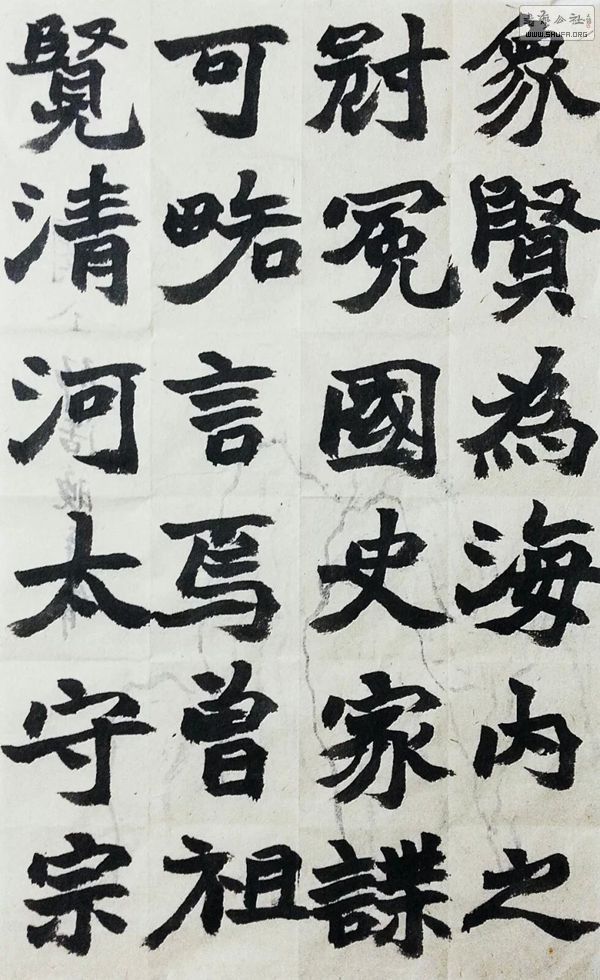 書藝公社
WWW.SHUFA.ORG
衆賢為海內之
冠冕國史家諜
可略言焉曾祖
清河太守宗